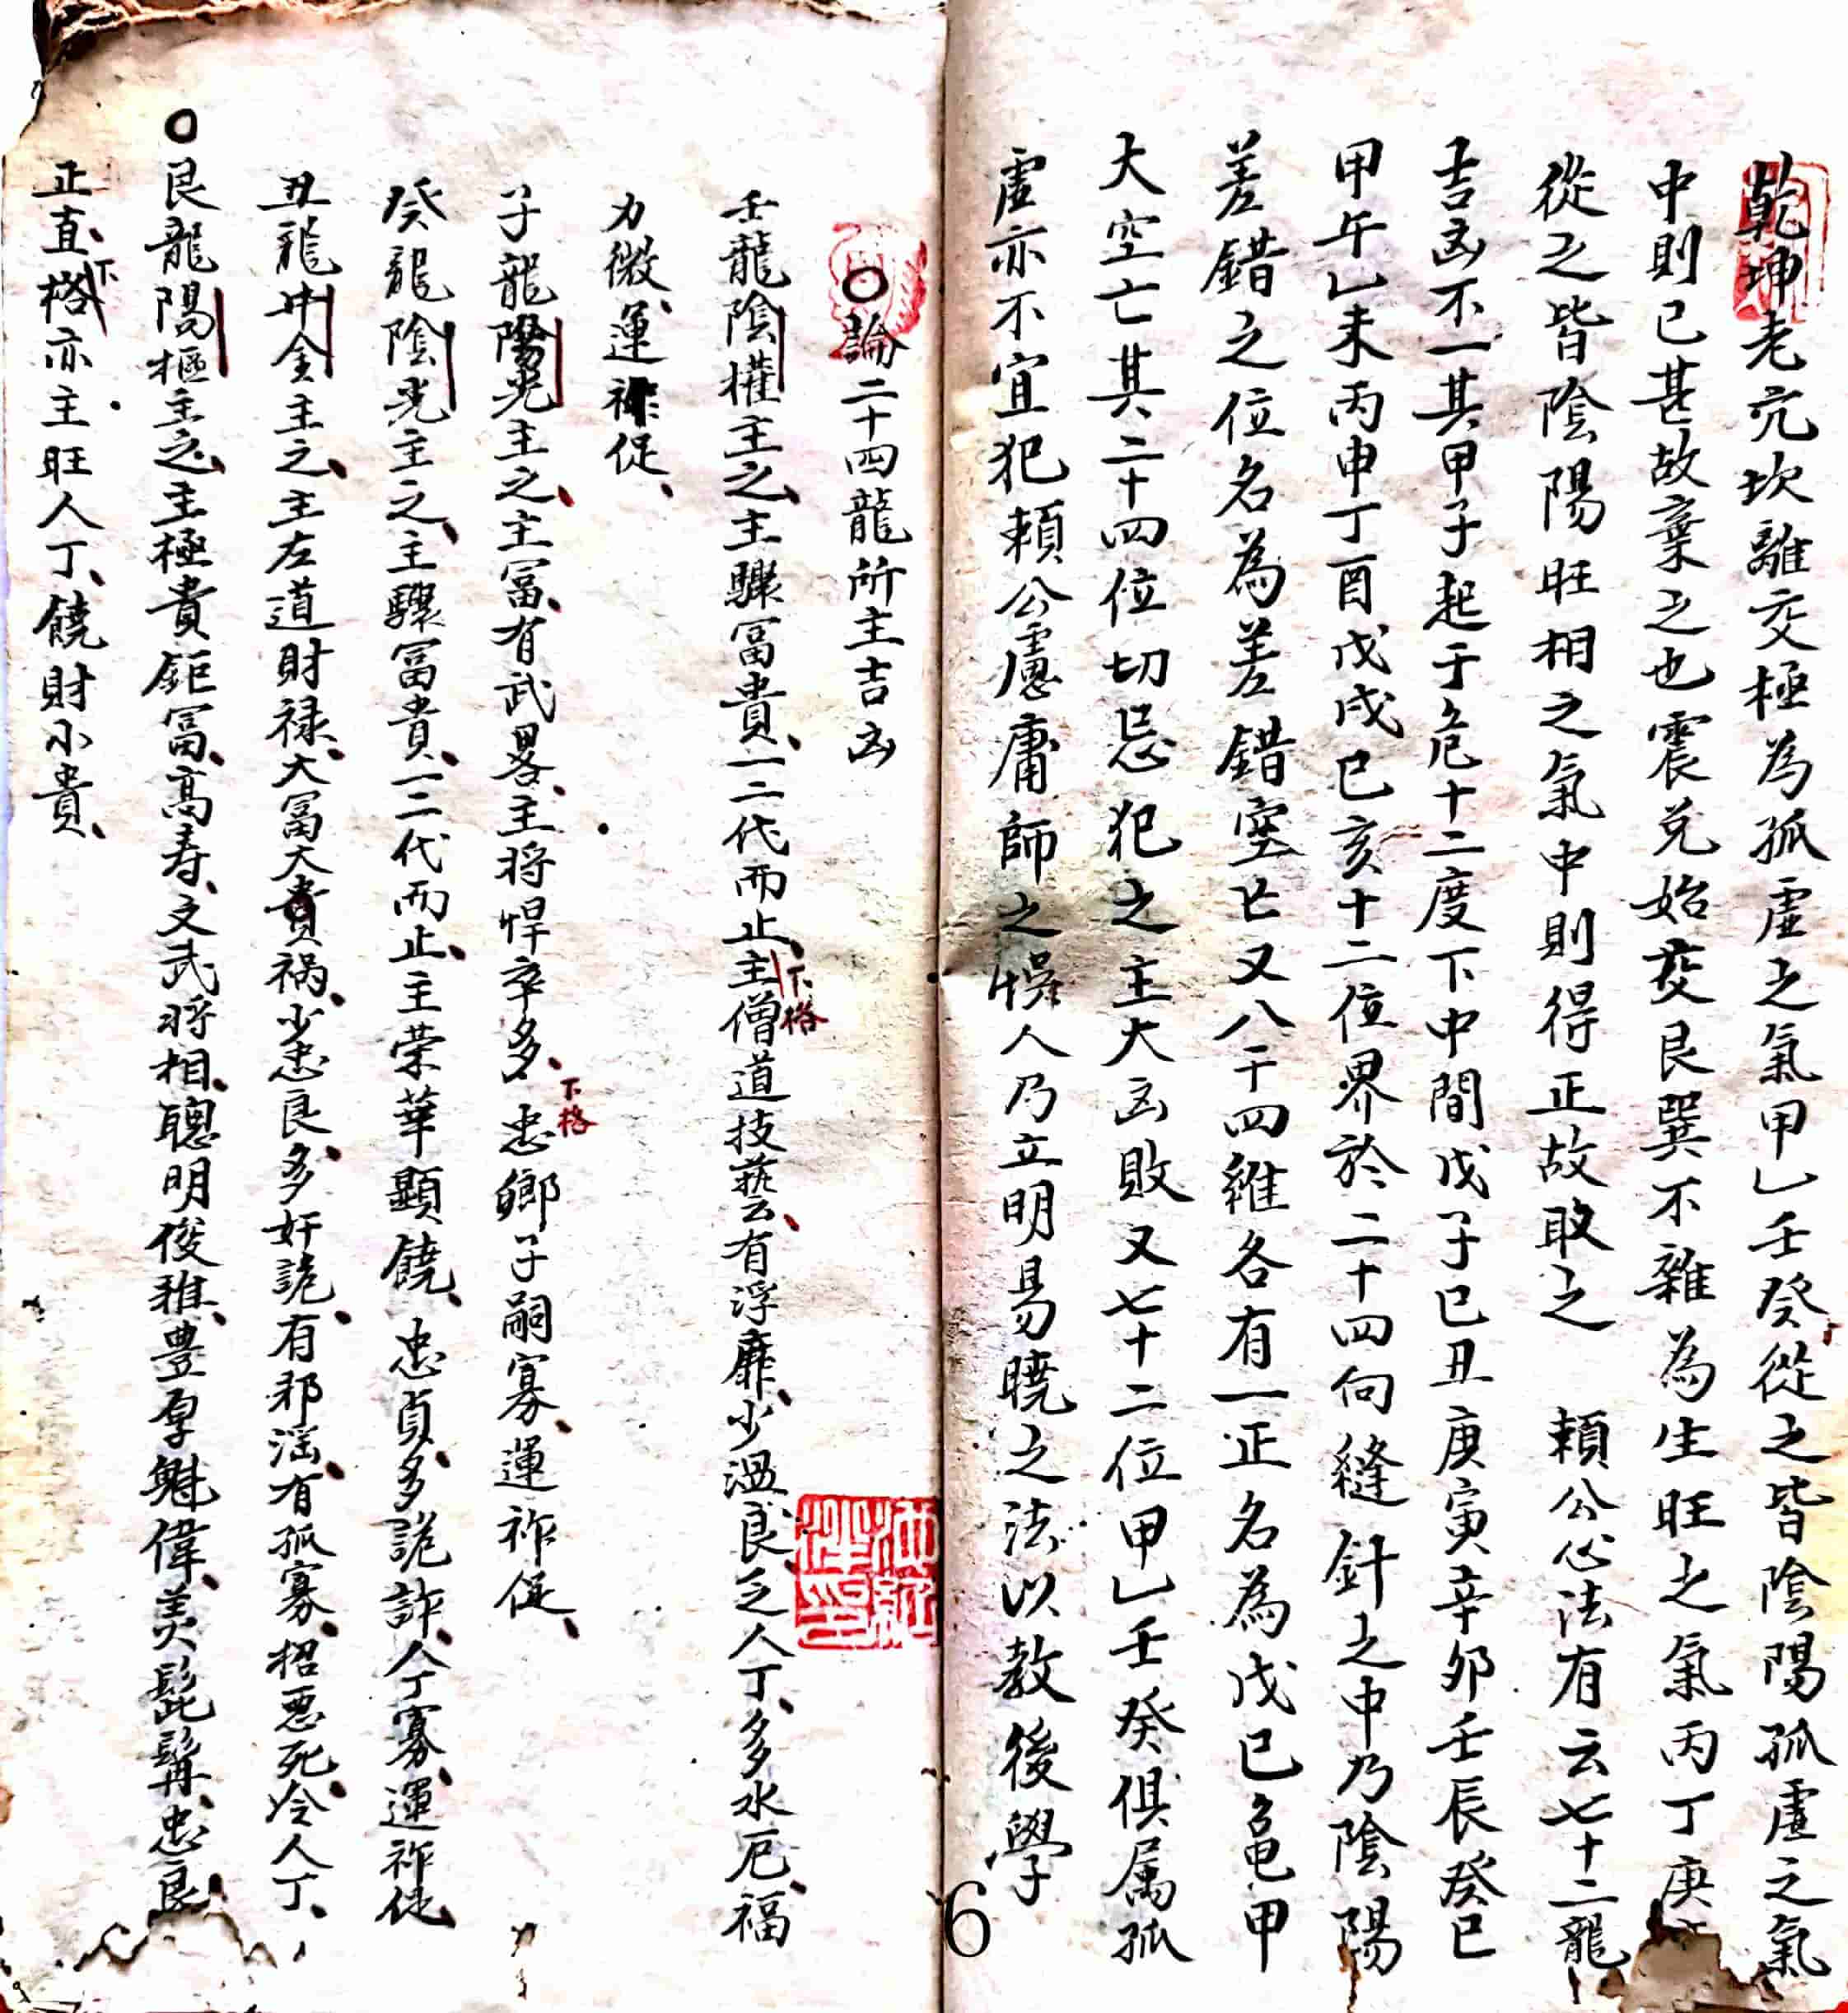 乾坤老亢坎離交極為孤虛之氣甲乙壬癸從之皆陰陽孤虛之氣
中則已甚故棄之也震兌始交艮巽不雜為生旺之氣丙丁庚
從之皆陰陽旺相之氣中則得正故取之 賴公心法有云七十二龍
吉凶不一其甲子起于危十二度下中間戊子己丑庚寅辛卯壬辰癸巳
甲午乙未丙申丁酉戊戌己亥十二位界於二十四向縫針之中乃陰陽
差錯之位名為差錯空亡又八干四維各有一正名為戊己龜甲
大空亡其二十四位切忌犯之主大凶敗又七十二位甲乙壬癸俱属孤
虛亦不宜犯賴公慮庸師之悞人乃立明易曉之法以教後學
○論二十四龍所主吉凶
壬龍陰權主之主驟富貴一二代而止主僧道技藝有浮靡少溫良乏人丁多水厄福
下格
力微運祚促
子龍陽光主之主富有武畧主将悍卒多忠鄉子嗣寡運祚促
下格
癸龍陰光主之主驟富貴一二代而止主荣華顯饒忠貞多詭詐人丁寡運祚促
丑龍牛金主之主左道財禄大富大貴禍少忠良多奸詭有邪滛有孤寡招恶死冷人丁
○艮龍陽樞主之主極貴鉅富高寿文武将相聰明俊雅豊厚魁偉美髭髯忠良
正直格亦主旺人丁饒財小貴
下
6